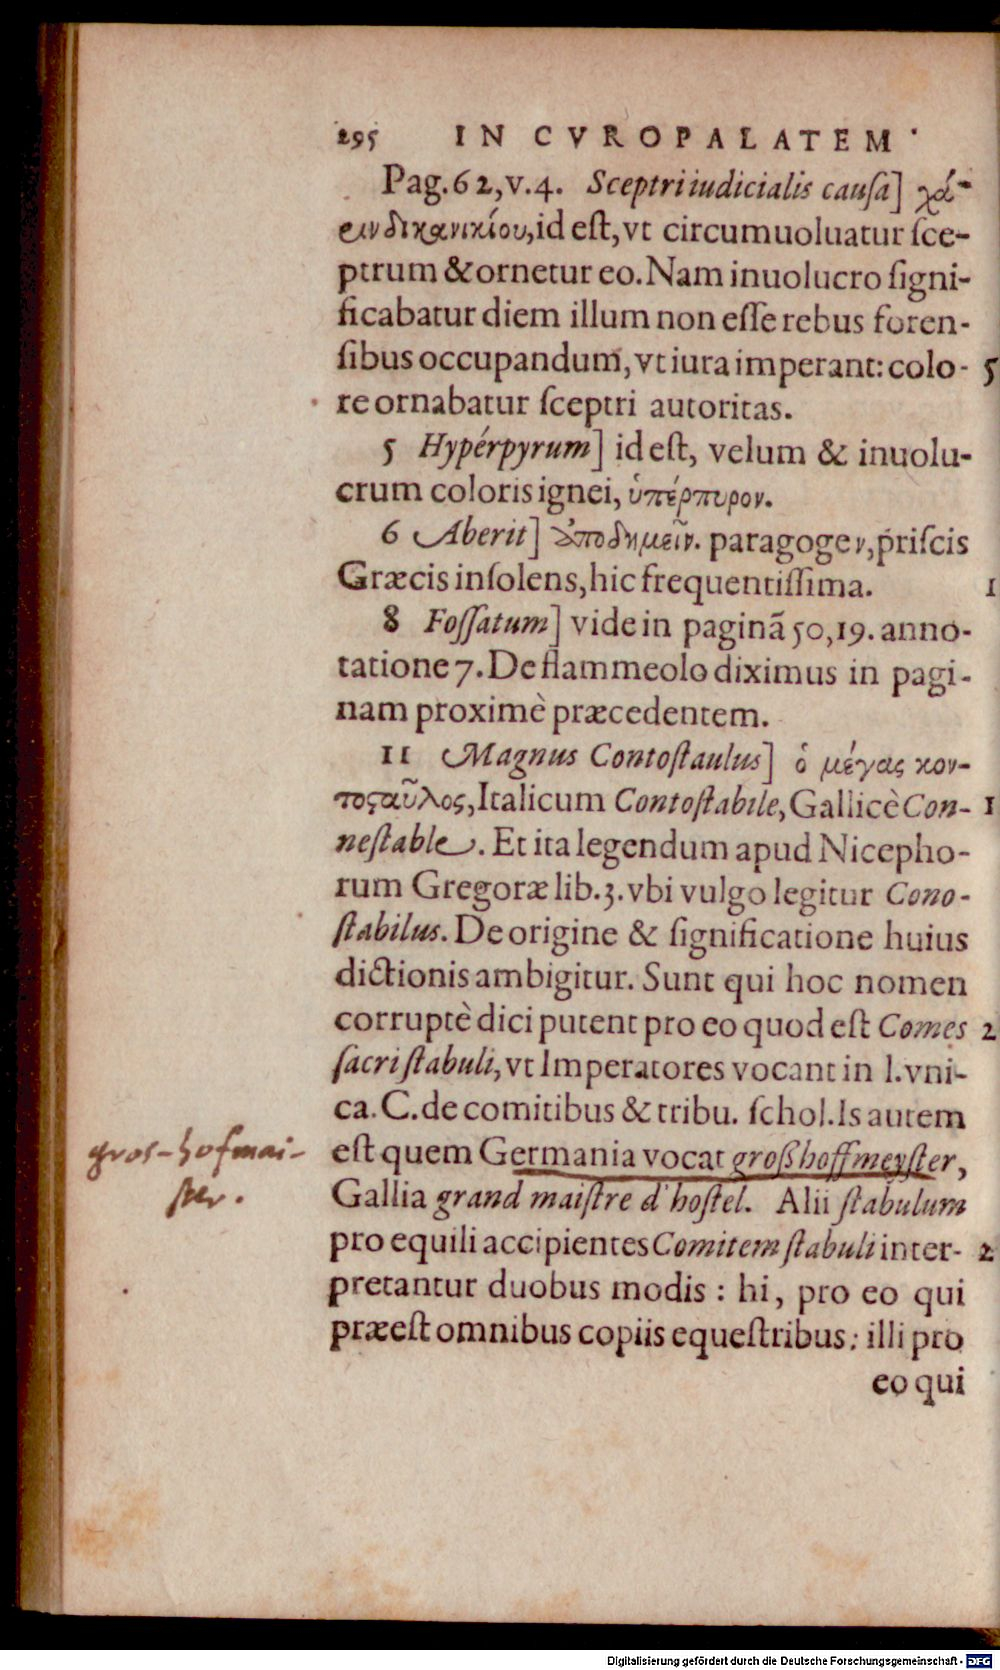 295 IN CVROPALATEM
Pag. 62, v. 4. Sceptri iudicialis causa] χά-
ειν δικανικίου, id est, vt circumuoluatur sce-
ptrum & ornetur eo. Nam inuolucro signi-
ficabatur diem illum non esse rebus foren-
sibus occupandum, vt iura imperant: colo- 5
re ornabatur sceptri autoritas.
5 Hypérpyrum] id est, velum & inuolu-
crum coloris ignei, ὑπέρπυρον.
6 Aberit] ἀποδημεῖν. paragoge ν, priscis
Græcis insolens, hic frequentissima. 1
8 Fossatum] vide in paginã 50, 19. anno-
tatione 7. De flammeolo diximus in pagi-
nam proximè præcedentem.
11 Magnus Contostaulus] ὁ μέγας κον-
τοσταῦλος, Italicum Contostabile, Gallicè Con- 1
nestable. Et ita legendum apud Nicepho-
rum Gregoræ lib. 3. vbi vulgo legitur Cono-
stabilus. De origine & significatione huius
dictionis ambigitur. Sunt qui hoc nomen
corruptè dici putent pro eo quod est Comes 2
sacri stabuli, vt Imperatores vocant in l. vni-
ca. C. de comitibus & tribu. schol. Is autem
est quem Germania vocat großhoffmeyster,
Gallia grand maistre d'hostel. Alii stabulum
pro equili accipientes Comitem stabuli inter- 2
pretantur duobus modis : hi, pro eo qui
præest omnibus copiis equestribus: illi pro
eo qui
gros-hofmai-
ster.
Digitalisierung gefördert durch die Deutsche Forschungsgemeinschaft - DFG